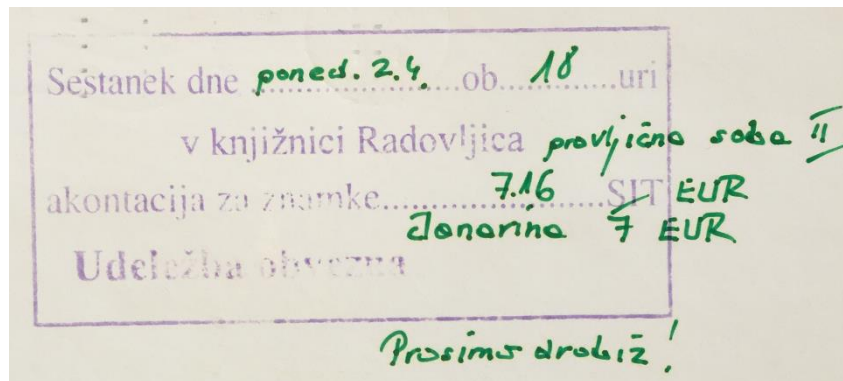 Sestanek dne poned. 2.4. ob 18 uri
v knjižnici Radovljica pravljična soba II
akontacija za znamke 7.16 SIT EUR
članarina 7 EUR
Udeležba obvezna
Prosimo drobiž!